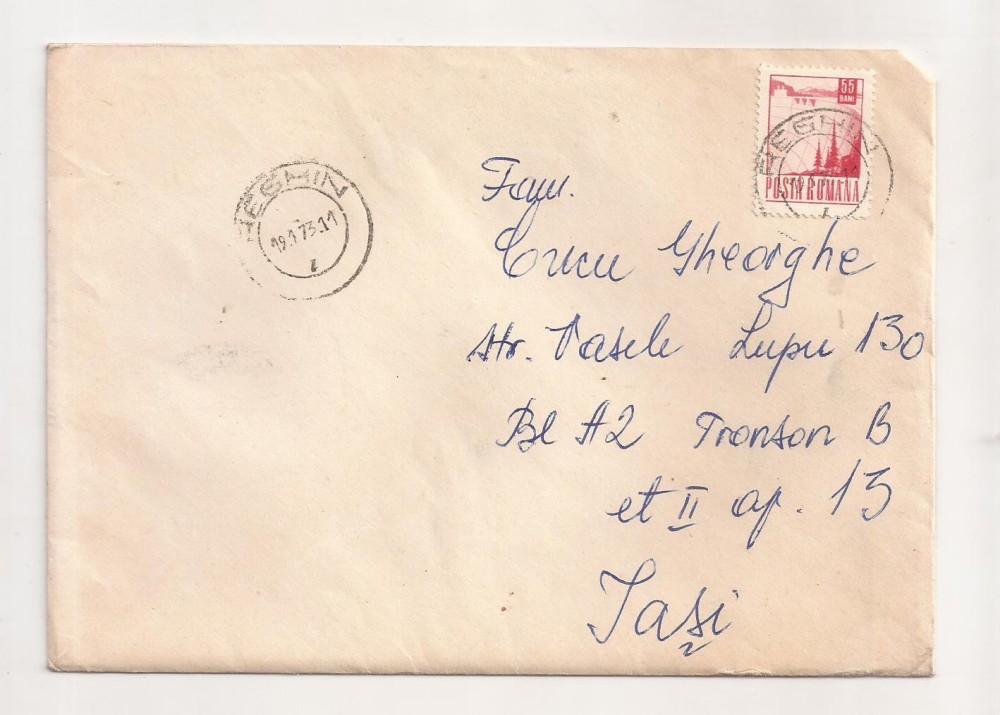 55
BANI
POSTA ROMANA
REGHIN
REGHIN
19.1.73.11
Fam.
Cucu Gheorghe
str. Vasele Lupu 130
Bl A2 Tronson B
et II ap. 13
Iași